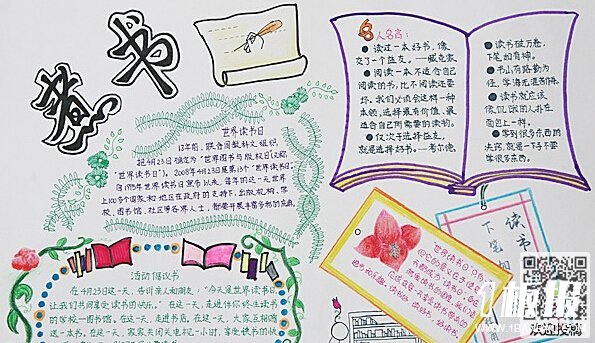 煮书
世界读书日
13年前，联合国教科文组织
把4月23日确定为“世界图书与版权日(又称
“世界读书日)。2008年4月23日是第13个“世界读书日。
自1995年世界读书日宣布以来，每年的这一天世界
上100多个国家和地区在政府的支持下，出版机构、学
校、图书馆、社区等各界人士，都要开展丰富多彩的庆典。
名人名言：
读过一本好书，像
交了一个益友。——臧克家
阅读一本不适合自己
阅读的书，比不阅读还要
坏。我们必须会这样一种
本领，选择最有价值、最
适合自己所需要的读物。
仅次于选择益友，
就是选择好书。——考尔德
读书破万卷，
下笔如有神。
书山有路勤为
径，学海无涯苦作舟。
读书就应该
像饥饿的人扑在
面包上一样。
学到很多东西的
诀窍，就是一下子不要
学很多东西。
活动倡议书
在4月23这一天，告诉亲人和朋友："今天是世界读书日
让我们共同享受读书的快乐。"在这一天，走进伴你终生读书
的学校——图书馆。在这一天，走进书店。在这一天，大家互相赠
送一本书。在这一天，家家关闭电视一小时，享受读书的快
世界读书日
读书
下笔